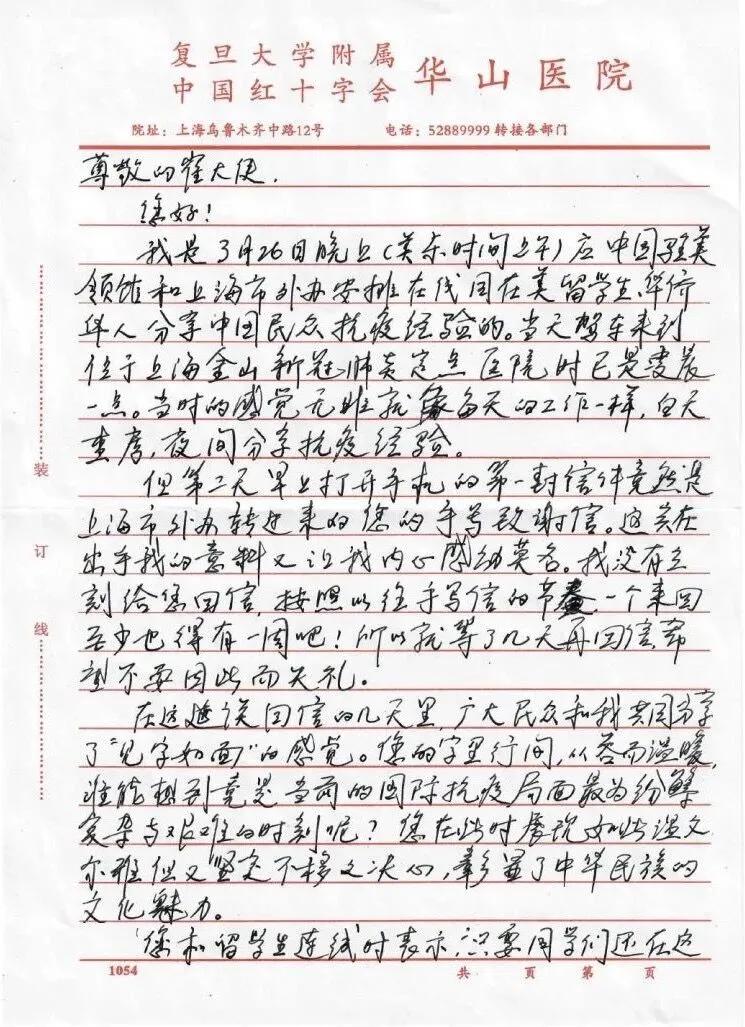 复旦大学附属
中国红十字会 华山医院
院址：上海乌鲁木齐中路12号 电话：52889999 转接各部门
尊敬的崔大使，
您好！
我是3月26日晚上（美东时间上午）应中国驻美
领馆和上海市外办安排在线同在美留学生、华侨
华人分享中国民众抗疫经验的。当天驾车来到
位于上海金山新冠肺炎定点医院时已是凌晨
一点。当时的感觉无非就像每天的工作一样，白天
查房，夜间分享抗疫经验。
但第二天早上打开手机的第一封信件竟然是
上海市外办转过来的您的手写致谢信。这实在
出乎我的意料又让我内心感动莫名。我没有立
刻给您回信，按照以往手写信的节奏一个来回
至少也得有一周吧！所以就等了几天再回信，希
望不要因此而失礼。
在这延误回信的几天里，广大民众和我共同分享
了“见字如面”的感觉。您的字里行间，从容而温暖，
谁能想到竟是当前的国际抗疫局面最为纷繁
复杂与艰难的时刻呢？您在此时展现如此温文
尔雅但又坚定不移之决心，彰显了中华民族的
文化魅力。
您和“留学生连线”时表示，只要同学们还在这
装
订
线
1054 共 页 第 页